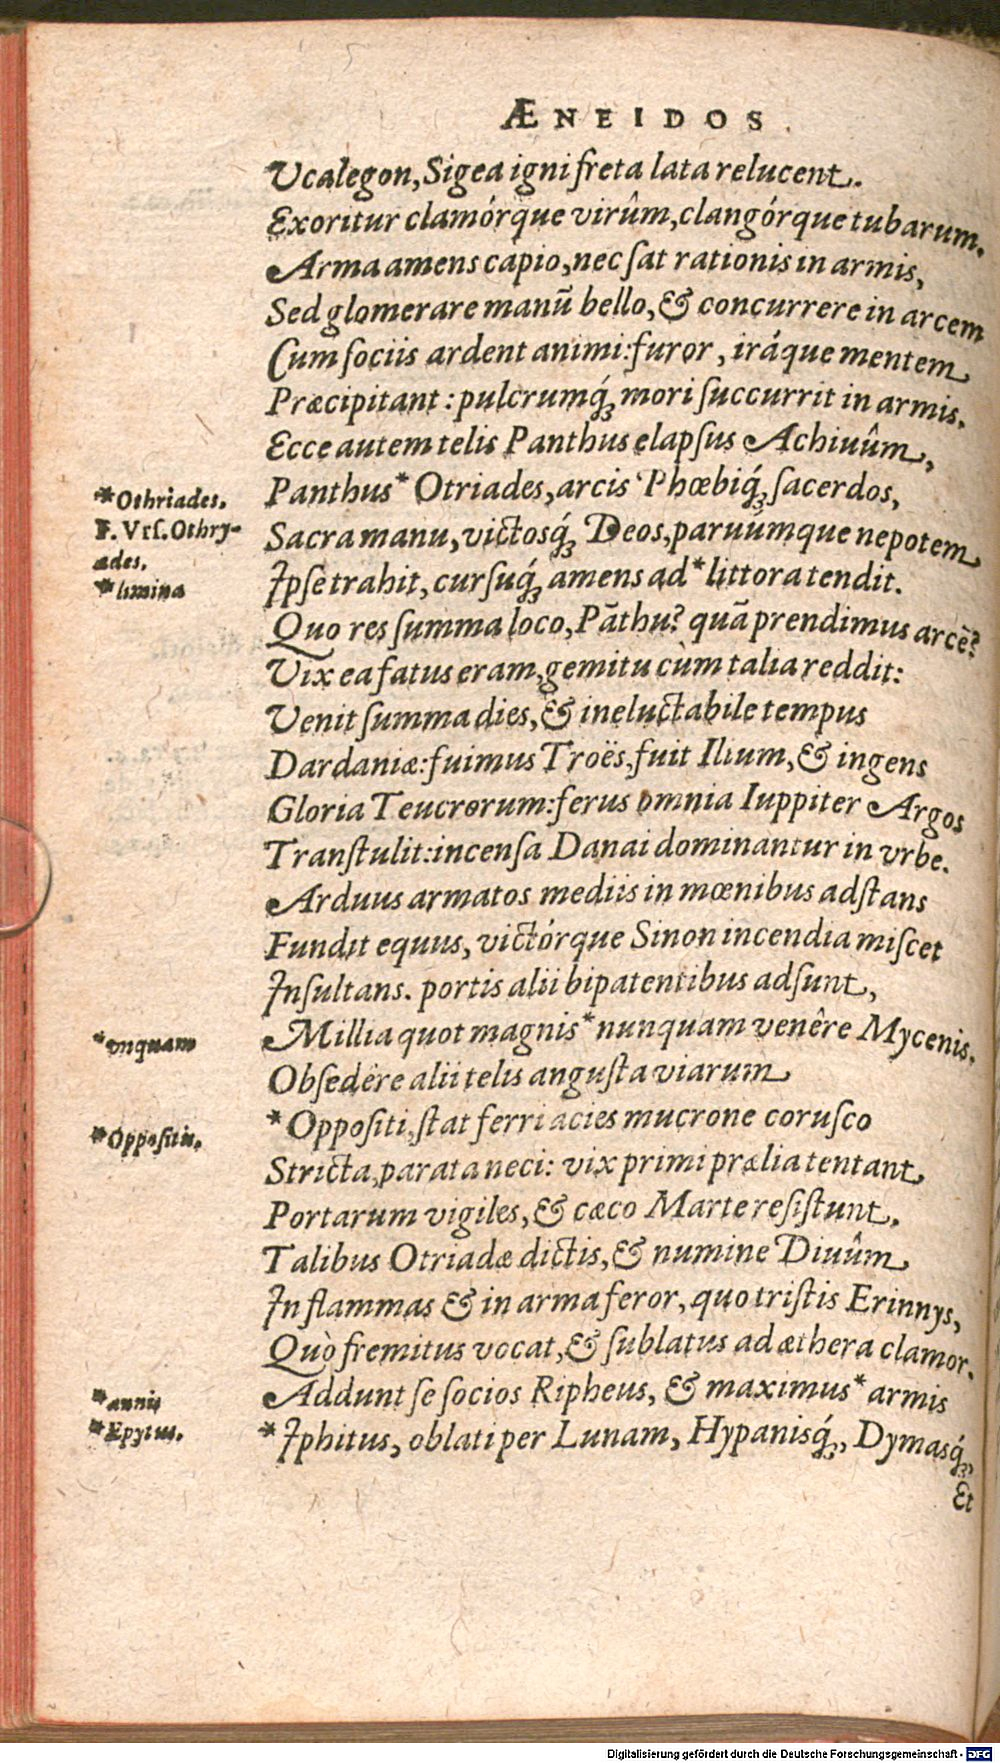 ÆNEIDOS
Vcalegon, Sigea igni freta lata relucent.
Exoritur clamórque virûm, clangórque tubarum.
Arma amens capio, nec sat rationis in armis,
Sed glomerare manū bello, & concurrere in arcem
Cum sociis ardent animi: furor, iráque mentem
Præcipitant: pulcrumq́; mori succurrit in armis.
Ecce autem telis Panthus elapsus Achiuûm,
Panthus* Otriades, arcis Phœbiq́; sacerdos,
*Othriades.
F. Vrs. Othry-
ades.
Sacra manu, victosq́; Deos, paruúmque nepotem
Ipse trahit, cursuq́; amens ad *littora tendit.
*limina
Quo res summa loco, Pāthu? quā prendimus arcē?
Vix ea fatus eram, gemitu cùm talia reddit:
Venit summa dies, & ineluctabile tempus
Dardaniæ: fuimus Troës, fuit Ilium, & ingens
Gloria Teucrorum: ferus omnia Iuppiter Argos
Transtulit: incensa Danai dominantur in vrbe.
Arduus armatos mediis in mœnibus adstans
Fundit equus, victórque Sinon incendia miscet
Insultans. portis alii bipatentibus adsunt,
Millia quot magnis *nunquam venêre Mycenis.
*vnquam
Obsedêre alii telis angusta viarum
*Oppositi, stat ferri acies mucrone corusco
*Oppositis.
Stricta, parata neci: vix primi prælia tentant
Portarum vigiles, & cæco Marte resistunt.
Talibus Otriadæ dictis, & numine Diuûm
In flammas & in arma feror, quo tristis Erinnys,
Quò fremitus vocat, & sublatus ad æthera clamor.
Addunt se socios Ripheus, & maximus* armis
*annis
*Iphitus, oblati per Lunam, Hypanisq́;, Dymasq́;,
*Epytus.
Et
Digitalisierung gefördert durch die Deutsche Forschungsgemeinschaft - DFG